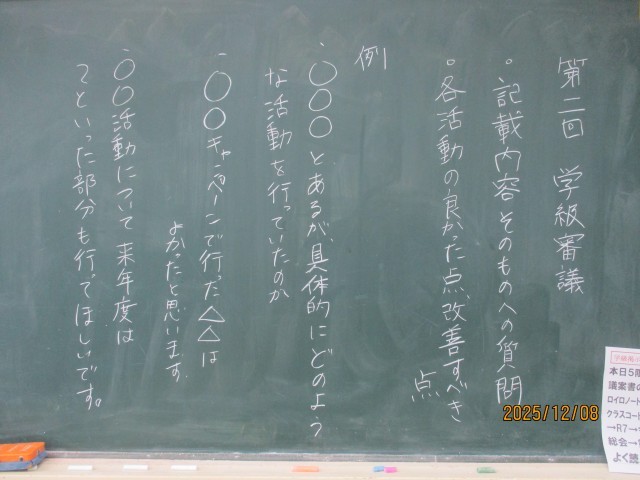 第二回 学級審議
・記載内容そのものへの質問
・各活動の良かった点、改善すべき
点
例
・〇〇〇とあるが、具体的にどのよう
な活動を行っていたのか
・〇〇キャンペーンで行った△△は
よかったと思います。
・〇〇活動について来年度は
〜といった部分も行てほしいです。
2025/12/08
本日5限
議案書の
ロイロノート
クラスコート
→R7→
総会→
よく読